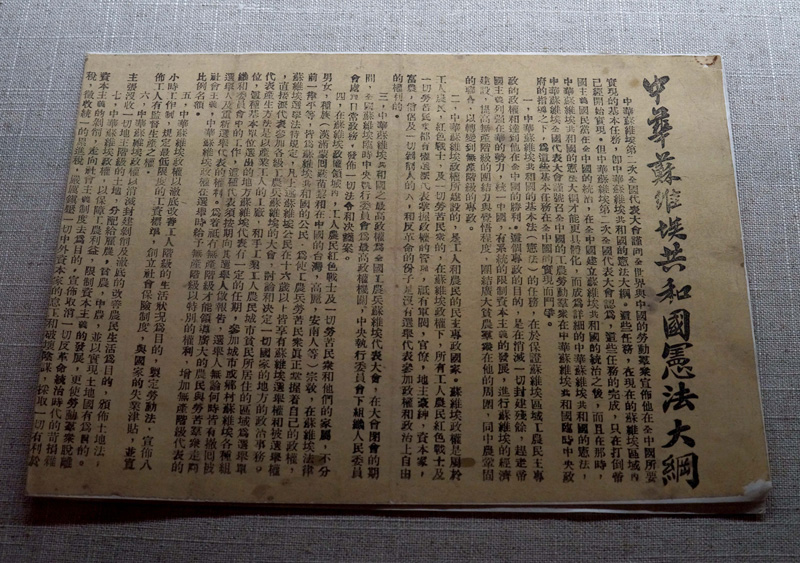 中華蘇維埃共和國憲法大綱
中華蘇維埃第二次全國代表大會謹向全世界與中國的勞動羣衆宣佈他在全中國所要
實現的基本任務，即中華蘇維埃共和國的憲法大綱。這些任務，在現在的蘇維埃區域內
已經開始實現。但中華蘇維埃第二次全國代表大會認爲，這些任務的完成，只在打倒帝
國主義國民黨在全中國的統治，在全中國建立蘇維埃共和國的統治之後。而且在那時，
中華蘇維埃共和國的憲法大綱才能更具體化，而成爲詳細的中華蘇維埃共和國的憲法，
中華蘇維埃全國代表大會謹號召全中國的工農勞動羣衆在中華蘇維埃共和國臨時中央政
府的指導之下，爲這些基本任務在全中國的實現而鬥爭。
一，中華蘇維埃共和國的基本法（憲法）的任務，在於保證蘇維埃區域工農民主專
政的政權和達到他在全中國的勝利。這個專政的目的，是在消滅一切封建殘餘，趕走帝
國主義列強在華的勢力，統一中國，有系統的限制資本主義的發展，進行蘇維埃的經濟
建設，提高無產階級的團結力與覺悟程度，團結廣大貧農羣衆在他的周圍，同中農鞏固
的聯合，以轉變到無產階級的專政。
二，中華蘇維埃政權所建設的，是工人和農民的民主專政國家。蘇維埃政權是屬於
工人，農民，紅色戰士，及一切勞苦民衆的，在蘇維埃政權下，所有工人農民紅色戰士及
一切勞苦民衆都有權選派代表掌握政權的管理，祇有軍閥，官僚，地主豪紳，資本家，
富農，僧侶及一切剝削人的人，和反革命的份子是沒有選舉代表參加政權和政治上自由
的權利的。
三，中華蘇維埃共和國之最高政權爲全國工農兵蘇維埃代表大會，在大會閉會的期
間，全國蘇維埃臨時中央執行委員會爲最高政權機關，中央執行委員會下組織人民委員
會處理日常政務，發佈一切法令和決議案。
四，在蘇維埃政權領域內，工人農民紅色戰士及一切勞苦民衆和他們的家屬，不分
男女，種族（漢滿蒙回藏苗黎和在中國的台灣，高麗，安南人等）宗教，在蘇維埃法律
前一律平等，皆爲蘇維埃共和國的公民。爲使工農兵勞苦民衆真正掌握着自己的政權，
蘇維埃選舉法特規定，凡上述蘇維埃公民在十六歲以上皆享有蘇維埃選舉權和被選舉權
，直接派代表參加各級工農兵蘇維埃的大會，討論和決定一切國家的地方的政治事務。
代表產生方法是以產業工人的工廠，和手工業工人農民城市貧民所居住的區域爲選舉單
位，這種基本單位選出的地方蘇維埃代表有一定的任期，參加城市或鄉村蘇維埃各種組
織和委員會中的工作，這種代表須按期向其選舉人做報告，選舉人無論何時皆有撤回被
選舉人及重新選舉代表的權利。爲着祇有無產階級才能領導廣大的農民與勞苦羣衆走向
社會主義，中華蘇維埃政權在選舉時給予無產階級以特別的權利，增加無產階級代表的
比例名額。
五，中華蘇維埃政權以徹底改善工人階級的生活狀況爲目的，製定勞動法，宣佈八
小時工作制，規定最低限度的工資標準，創立社會保險制度，與國家的失業津貼，並宣
佈工人有監督生產之權。
六，中華蘇維埃政權以消滅封建剝削及徹底的改善農民生活爲目的，頒佈土地法，
主張沒收一切地主階級的土地，分配給雇農，貧農，中農，並以實現土地國有爲目的。
七，中華蘇維埃政權以保障工農利益，限制資本主義的發展，更使勞動羣衆脫離
資本主義的剝削，走向社會主義制度去爲目的，宣佈取消一切反革命統治時代的苛捐雜
稅，徵收統一的累進稅，嚴厲鎮壓一切中外資本家的怠工和破壞陰謀，採取一切有利於